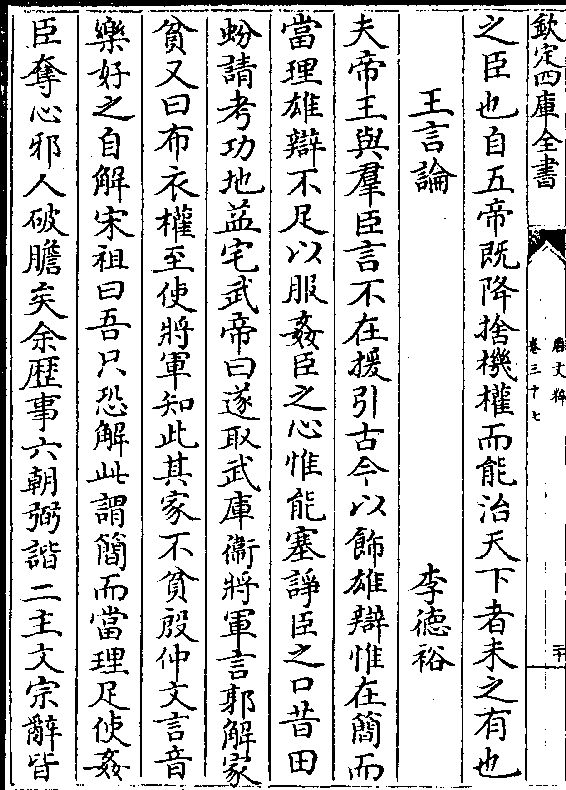 欽定四庫全書
唐文粹
卷三十七
二十
之臣也自五帝既降捨機權而能治天下者未之有也
王言論 李德裕
夫帝王與羣臣言不在援引古今以飾雄辯惟在簡而
當理雄辯不足以服姦臣之心惟能塞諍臣之口昔田
蚡請考功地益宅武帝曰遂取武庫衞將軍言郭解家
貧又曰布衣權至使將軍知此其家不貧殷仲文言音
樂好之自解宋祖曰吾只恐解此謂簡而當理足使姦
臣奪心邪人破膽矣余歴事六朝弼諧二主文宗辭皆